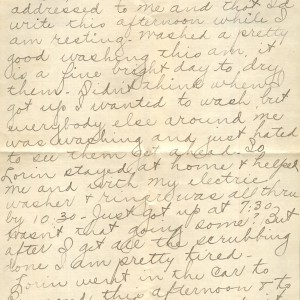 addressed to me and that I'd
write this afternoon while I
am resting. Washed a pretty
good washing this am, it
is a fine bright day to dry
them. Didn't think when I
got up I wanted to wash, but
everybody else around me
was washing and just hated
to see them get ahead. So
stayed at home & helped
me and with my electric
washer & ringer was all thru
by 10.30 - Just got up at 7:30
Wasn't that going some? But
after I get all the scrubbing
done I am pretty tired -
went in the car to
this afternoon & to